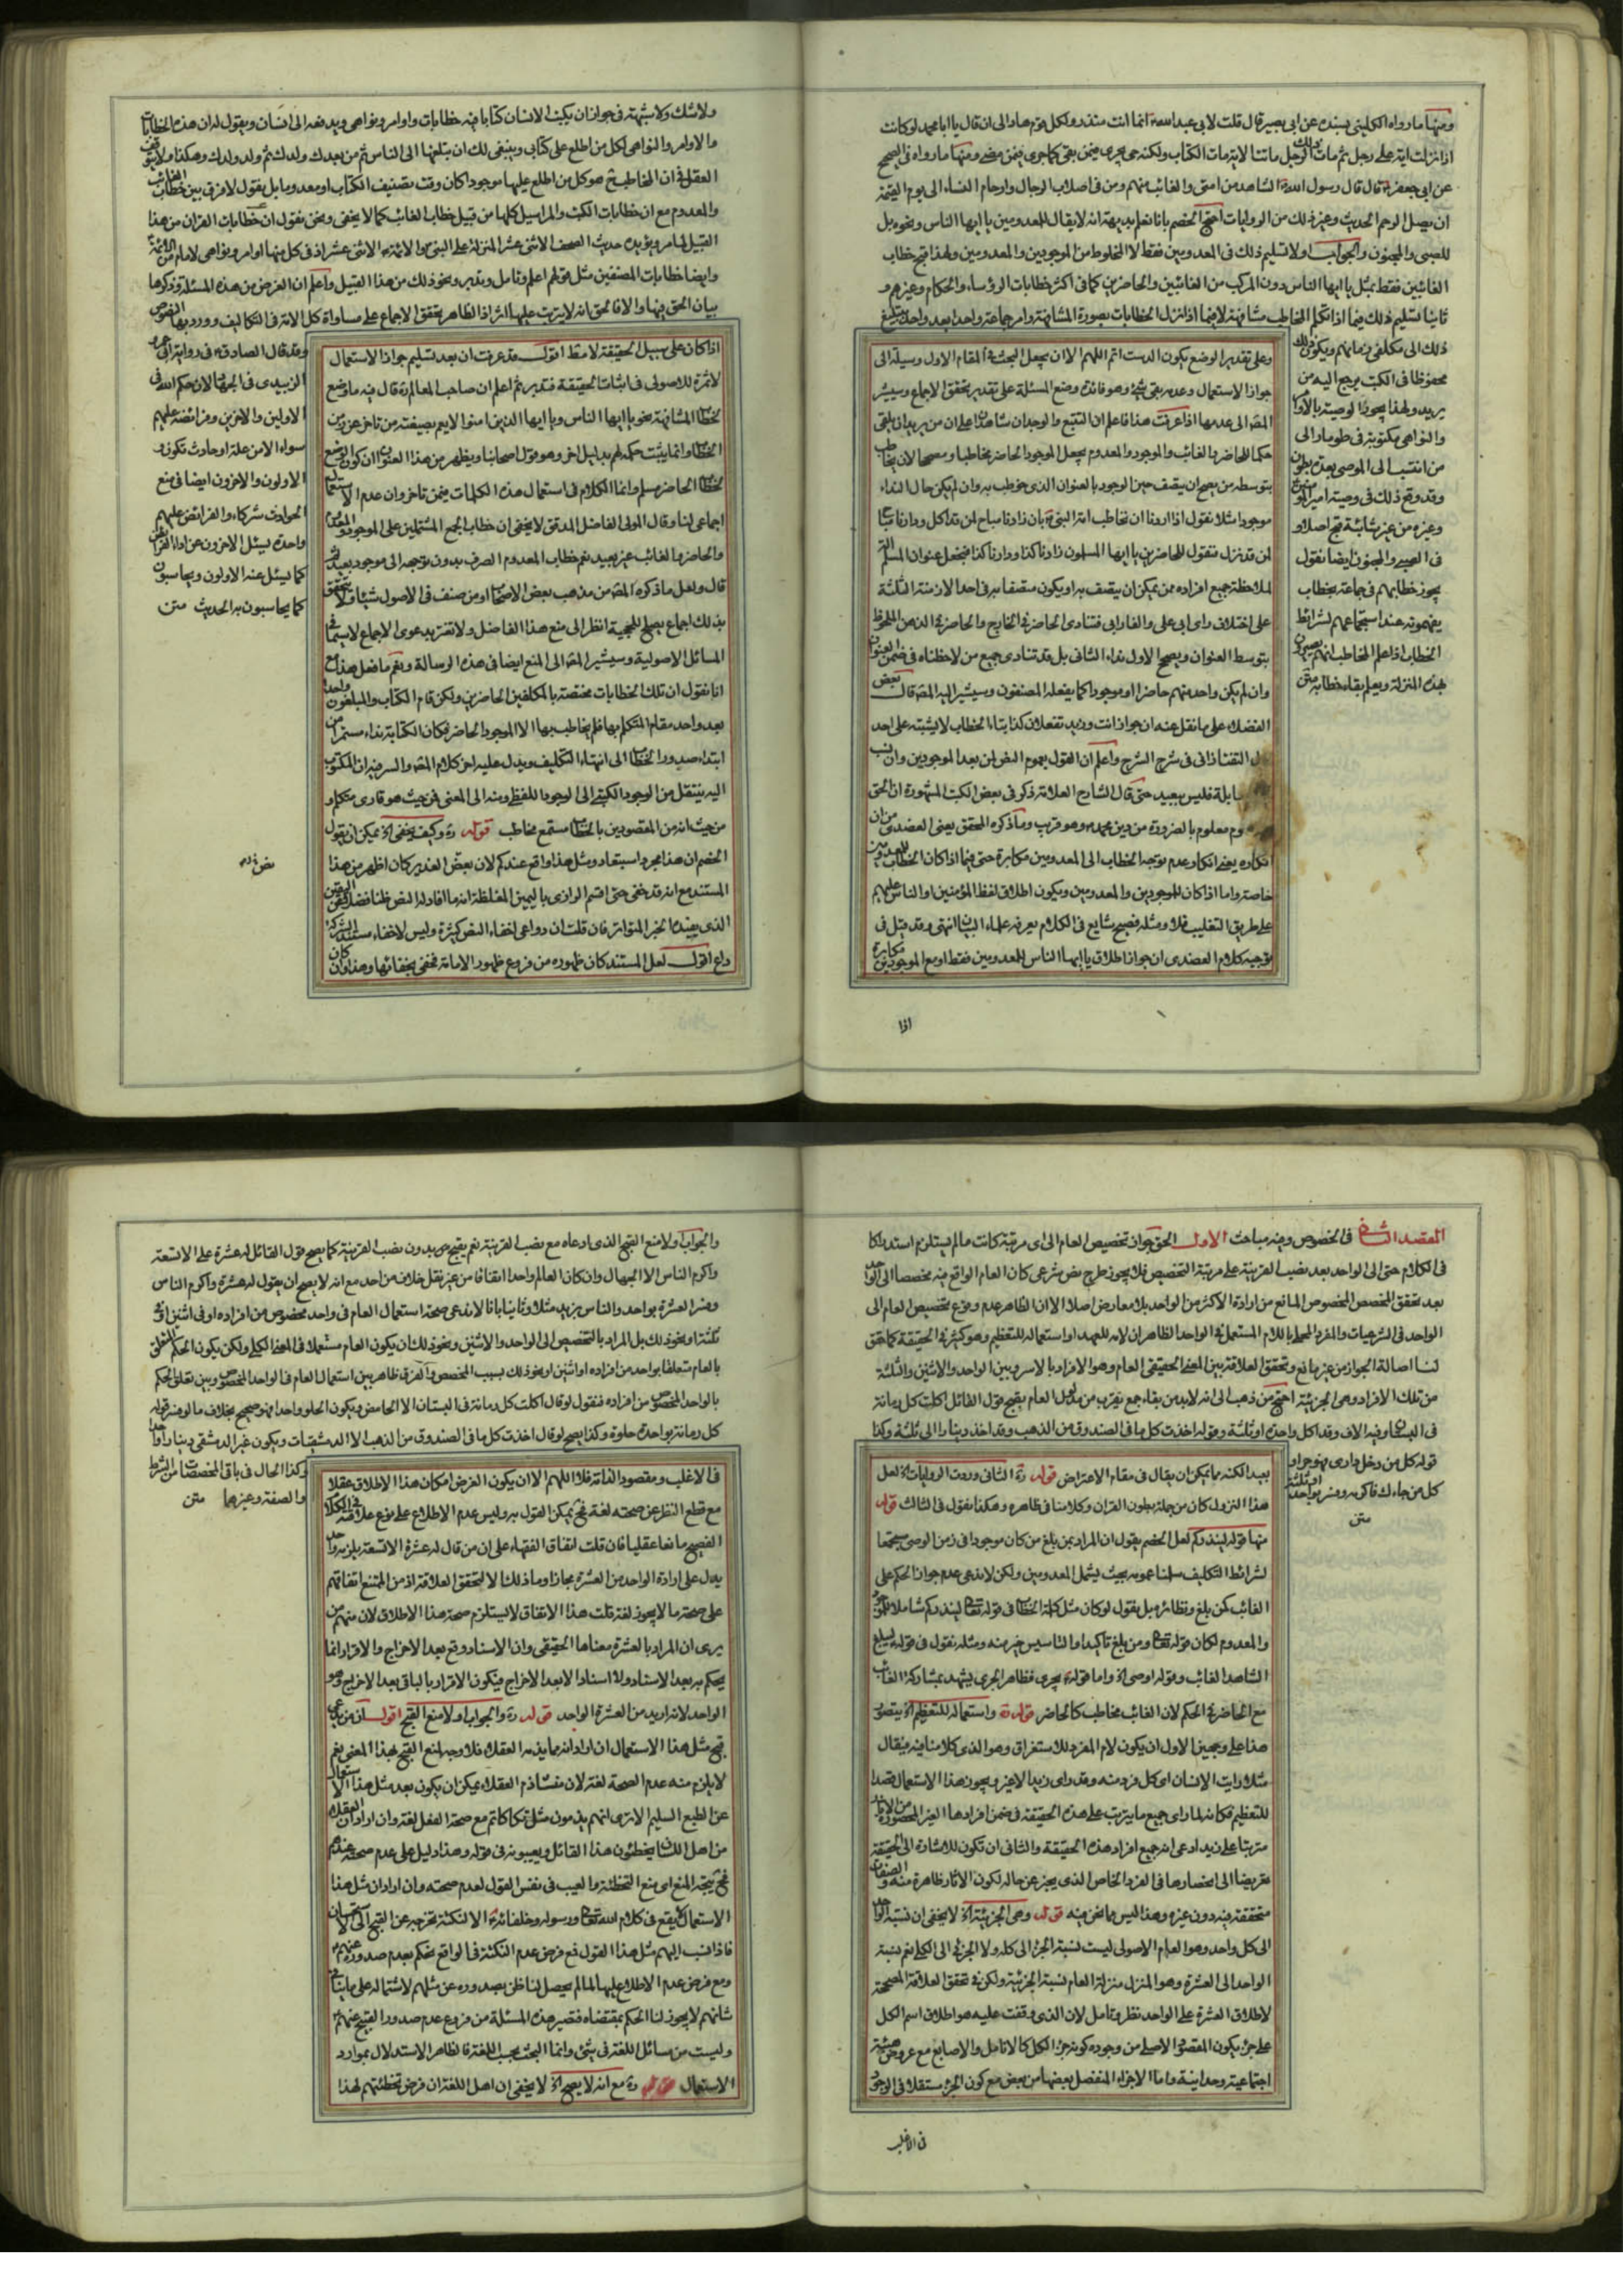 ومنها ما رواه الكليني بسنده عن ابي بصير قال قلت لابي عبد الله انما انت منذر ولكل قوم هاد الى ان قال يا ابا محمد لو كانت
اذا نزلت اية على رجل ثم مات ذلك الرجل ماتت الاية مات الكتاب ولكنه حي يجري فيمن بقي كما جرى فيمن مضى ومنها ما رواه في الصحيح
عن ابي جعفر قال قال رسول الله الشاهد من امتي والغائب منهم ومن في اصلاب الرجال وارحام النساء الى يوم القيمة
ان يصل الرحم الحديث وغير ذلك من الروايات احتج الخصم بانا نعلم بديهة انه لا يقال للمعدومين يا ايها الناس ونحوه بل
للصبي والمجنون والجواب اولا تسليم ذلك في المعدومين فقط لا المخلوط من الموجودين والمعدومين ولهذا قبح خطاب
الغائبين فقط بمثل يا ايها الناس دون المركب من الغائبين والحاضرين كما في اكثر خطابات الرؤساء والحكام وغيرهم و
ثانيا تسليم ذلك فيما اذا تكلم المخاطب مشافهة لا فيما اذا نزل الخطابات بصورة المشافهة وامر جماعة واحدا بعد واحد بتبليغ
ذلك الى مكلفي زمانهم ويكون ذلك
محفوظا في الكتب يرجع اليه من
يريد ولهذا يجوز الوصية بالاوامر
والنواهي مكتوبة في طومار الى
من انتسب الى الموصي بعده بطون
وقد وقع ذلك في وصية امير المؤمنين
وغيره من غير شائبة قبح اصلا و
في الصبي والمجنون ايضا نقول
يجوز خطابهم في جماعة بخطاب
يفهمونه عند استجماعهم لشرائط
الخطاب اذا علم المخاطب انهم يصيرون
بهذه المنزلة ويعلم بقاء خطابه متن
وعلى تقدير الوضع يكون الدست اتم اللهم الا ان يجعل البحث في المقام الاول وسيلة الى
جواز الاستعمال وعدمه بقي شيء وهو فائدة وضع المسئلة على تقدير تحقق الاجماع وسيشير
المص الى عدمها اذا عرفت هذا فاعلم ان التتبع والوجدان شاهدان على ان من يريد ان يلقي
حكما للحاضر والغائب والموجود والمعدوم يجعل الموجود الحاضر مخاطبا ومصححا لان يخاطب
بتوسطه من يصح ان يتصف حين الوجود بالعنوان الذي خوطب به وان لم يكن حال النداء
موجودا مثلا نقول اذا اردنا ان نخاطب امة النبي بان زادنا مباح لمن قد اكل ودارنا مباح
لمن قد نزل فنقول للحاضرين يا ايها المسلمون زادنا كذا ودارنا كذا فنجعل عنوان المسلم
لملاحظة جميع افراده ممن يمكن ان يتصف به او يكون متصفا به في احد الازمنة الثلثة
على اختلاف راي ابي علي والفارابي فتنادي الحاضر في الخارج والحاضر في الذهن الملحوظ
بتوسط العنوان ويصح الاول نداء الثاني بل قد تنادي جميع من لاحظناه في ضمن العنوان
وان لم يكن واحد منهم حاضرا او موجودا كما يفعله المصنفون وسيشير اليه المص قال بعض
الفضلاء على ما نقل عنه ان جواز انت وزيد تفعلان كذا بتاء الخطاب لا يشتبه على احد
التفتازاني في شرح الشرح واعلم ان القول بعموم النص لمن بعد الموجودين وان نسب
فليس ببعيد حتى قال الشارح العلامة ذكر في بعض الكتب المشهورة ان الحق
معلوم بالضرورة من دين محمد وهو قريب وما ذكره المحقق يعني العضدي من ان
انكاره يعني انكار عدم توجه الخطاب الى المعدومين مكابرة حتى فيما اذا كان الخطاب للمعدومين
خاصة واما اذا كان للموجودين والمعدومين ويكون اطلاق لفظ المؤمنين او الناس عليهم
على طريق التغليب فلا ومثله فصيح شايع في الكلام يعرفه علماء البيان انتهى وقد قيل في
توجيه كلام العضدي ان جواز اطلاق يا ايها الناس للمعدومين فقط او مع الموجودين مكابرة
اذا
ولا شك ولا شبهة في جواز ان يكتب الانسان كتابا فيه خطابات واوامر ونواهي ويدفعه الى انسان ويقول له ان هذه الخطابات
والاوامر والنواهي لكل من اطلع على كتابي وينبغي لك ان تبلغها الى الناس ثم من بعدك ولدك ثم ولد ولدك وهكذا ولا يتوقف
العقل في ان المخاطب ح هو كل من اطلع عليها موجودا كان وقت تصنيف الكتاب او معدوما بل يقول لا فرق بين خطاب الغائب
والمعدوم مع ان خطابات الكتب والمراسيل كلها من قبيل خطاب الغائب كما لا يخفى ونحن نقول ان خطابات القران من هذا
القبيل لما مر ويؤيده حديث الصحف الاثنى عشر المنزلة على النبي والائمة الاثنى عشر اذ في كل منها اوامر ونواهي لامام من الائمة
وايضا خطابات المصنفين مثل قولهم اعلم وتامل وتدبر ونحو ذلك من هذا القبيل واعلم ان الغرض من هذه المسئلة وذكرها
بيان الحق فيها والا فالحق انه لا يترتب عليها اثر اذ الظاهر تحقق الاجماع على مساواة كل الامة في التكاليف وورد بها النصوص
وقد قال الصادق في رواية ابي عمرو
الزبيدي في الجهاد لان حكم الله في
الاولين والاخرين وفرائضه عليهم
سواء الا من علة او حادث تكون و
الاولون والاخرون ايضا في منع
الحوادث شركاء والفرائض عليهم
واحدة يسئل الاخرون عن اداء الفرائض
كما يسئل عنه الاولون ويحاسبون
كما يحاسبون به الحديث متن
اذا كان على سبيل الحقيقة لا مطلقا اقول قد عرفت ان بعد تسليم جواز الاستعمال
لا ثمرة للاصولي في اثبات الحقيقة فتدبر ثم اعلم ان صاحب المعالم ره قال فيه ما وضع
لخطاب المشافهة نحو يا ايها الناس ويا ايها الذين امنوا لا يعم بصيغته من تاخر عن زمن
الخطاب وانما يثبت حكمه لهم بدليل اخر وهو قول اصحابنا ويظهر من هذا العنوان ان كون الوضع
لخطاب الحاضر مسلم وانما الكلام في استعمال هذه الكلمات فيمن تاخر وان عدم الاستعمال
اجماعي لنا وقال المولى الفاضل المدقق لا يخفى ان خطاب الجمع المشتملين على الموجود والمعدوم
والحاضر والغائب غير بعيد نعم خطاب المعدوم الصرف بدون توجهه الى موجود بعيد ثم
قال ولعل ما ذكره المص من مذهب بعض الاصحاب او من صنف في الاصول شيئا ولا يتحقق
بذلك اجماع يصلح للحجية انظر الى منع هذا الفاضل ولا تغتر بدعوى الاجماع لا سيما في
المسائل الاصولية وسيشير المص الى المنع ايضا في هذه الرسالة ونعم ما فعل هذا مع
انا نقول ان تلك الخطابات مختصة بالمكلفين الحاضرين ولكن قام الكتاب والمبلغون واحدا
بعد واحد مقام المتكلم بها فلم يخاطب بها الا الموجود الحاضر فكان الكتابة نداء مستمر من
ابتداء صدور الخطاب الى انتهاء التكليف ويدل عليه اخر كلام المص والسر فيه ان المكتوب
اليه ينتقل من الوجود الكتبي الى الوجود اللفظي ومنه الى المعنى فمن حيث هو قاري متكلم و
من حيث انه من المقصودين بالخطاب مستمع مخاطب قوله ره وكيف يخفى اه يمكن ان يقول
الخصم ان هذا مجرد استبعاد ومثل هذا واقع عندكم لان نص الغدير كان اظهر من هذا
المستند مع انه قد خفي حتى اقسم الرازي باليمين المغلظة انه ما افاد له النص ظنا فضلا عن اليقين
الذي يفيده الخبر المتواتر فان قلت ان دواعي اخفاء النص كثيرة وليس لاخفاء مستند الشركة
داع اقول لعل المستند كان ظهوره من فروع ظهور الامامة فخفي بخفائها وهذا وان كان
نص ره
المقصد الثاني في الخصوص وفيه مباحث الاول الحق جواز تخصيص العام الى اي مرتبة كانت ما لم يستلزم استدراكا
في الكلام حتى الى الواحد بعد نصب القرينة على مرتبة التخصيص فلا يجوز طرح نص شرعي كان العام الواقع فيه مخصصا الى الواحد
بعد تحقق المخصص المخصوص المانع من ارادة الاكثر من الواحد بلا معارض اصلا الا ان الظاهر عدم وقوع تخصيص العام الى
الواحد في الشرعيات والمفرد المحلى باللام المستعمل في الواحد الظاهر ان لامه للعهد او استعماله للتعظيم وهو كثير في الحقيقة كما حقق
لنا اصالة الجواز من غير مانع وتحقق العلاقة بين المعنى الحقيقي العام وهو الافراد بالاسر وبين الواحد والاثنين والثلثة
من تلك الافراد وهي الجزئية احتج من ذهب الى انه لابد من بقاء جمع يقرب من مدلول العام بقبح قول القائل اكلت كل رمانة
في البستان وفيه الاف وقد اكل واحدة او ثلثة وقوله اخذت كل ما في الصندوق من الذهب وقد اخذ دينارا الى ثلثة وكذا
قوله كل من دخل داري فهو حر او
كل من جاءك فاكرمه وفسر بواحد او ثلثة
متن
بعيدا لكنه مما يمكن ان يقال في مقام الاعتراض قوله ره الثاني وردت الروايات اه لعل
هذا النزول كان من جملة بطون القران وكلامنا في ظاهره وهكذا نقول في الثالث قوله
منها قوله لينذركم لعل الخصم يقول ان المراد بمن بلغ من كان موجودا في زمن الوحي مستجمعا
لشرائط التكليف سلمنا عمومه بحيث يشمل المعدومين ولكن لا ندعي عدم جواز الحكم على
الغائب كمن بلغ ونظائره بل نقول لو كان مثل كلمة الخطاب في قوله تعالى لينذركم شاملا للموجود
والمعدوم لكان قوله تعالى ومن بلغ تاكيدا والتاسيس خير منه ومثله نقول في قوله ليبلغ
الشاهد الغائب وقوله اوصي اه واما قوله يجري فظاهر الجري يشهد بمشاركة الغائب
مع الحاضر في الحكم لان الغائب مخاطب كالحاضر قوله ره واستعماله للتعظيم اه يتصور
هذا على وجهين الاول ان يكون لام المفرد للاستغراق وهو الذي كلامنا فيه فيقال
مثلا رايت الانسان اي كل فرد منه وقد راى زيدا لا غير ويجوز هذا الاستعمال قصدا
للتعظيم فكانه لما راى جميع ما يترتب على هذه الحقيقة في ضمن افرادها الغير المحصورة من الاثار
مترتبا على زيد ادعى انه جميع افراد هذه الحقيقة والثاني ان تكون للاشارة الى الحقيقة
تعريضا الى انحصارها في الفرد الخاص الذي يخبر عن حاله لكون الاثار ظاهرة منه والصفات
متحققة فيه دون غيره وهذا ليس مما نحن فيه قوله وهي الجزئية اه لا يخفى ان نسبة الواحد
الى كل واحد وهو العام الاصولي ليست نسبة الجزء الى كله ولا الجزئي الى الكلي نعم نسبة
الواحد الى العشرة وهو المنزل منزلة العام نسبة الجزئية ولكن في تحقق العلاقة المصححة
لاطلاق العشرة على الواحد نظر وتامل لان الذي وقفت عليه هو اطلاق اسم الكل
على جزء يكون المقصود الاصلي من وجوده كونه جزء الكل كالانامل والاصابع مع عروض هيئة
اجتماعية وحدانية واما الاجزاء المنفصل بعضها من بعض مع كون الجزء مستقلا في الوجود
في الاغلب
والجواب اولا منع القبح الذي ادعاه مع نصب القرينة نعم يقبح من يريد بدون نصب القرينة كما يصح قول القائل له عشرة الا تسعة
واكرم الناس الا الجهال وان كان العالم واحدا اتفاقا من غير نقل خلاف من احد مع انه لا يصح ان يقول له عشرة واكرم الناس
وفسر العشرة بواحد والناس بزيد مثلا وثانيا بانا لا ندعي صحة استعمال العام في واحد مخصوص من افراده او في اثنين او في
ثلثة او نحو ذلك بل المراد بالتخصيص الى الواحد والاثنين ونحو ذلك ان يكون العام مستعملا في المعنى الكلي ولكن يكون الحكم المتعلق
بالعام متعلقا بواحد من افراده او اثنين او نحو ذلك بسبب المخصص والفرق ظاهر بين استعمال العام في الواحد المخصوص وبين تعلق الحكم
بالواحد المخصوص من افراده فنقول لو قال اكلت كل رمانة في البستان الا الحامض ويكون الحلو واحدا فهو صحيح بخلاف ما لو فسر قوله
كل رمانة بواحدة حلوة وكذا يصح لو قال اخذت كل ما في الصندوق من الذهب الا الدمشقيات ويكون غير الدمشقي دينارا واحدا
وكذا الحال في باقي المخصصات من الشرط
والصفة وغيرها متن
في الاغلب ومقصودا لذاته فلا اللهم الا ان يكون الغرض امكان هذا الاطلاق عقلا
مع قطع النظر عن صحته لغة فح يمكن القول به وليس عدم الاطلاع على نوع علاقته في الكلام
الفصيح مانعا عقليا فان قلت اتفاق الفقهاء على ان من قال له عشرة الا تسعة يلزمه واحد
يدل على ارادة الواحد من العشرة مجازا وما ذلك الا لتحقق العلاقة اذ من الممتنع اتفاقهم
على صحة ما لا يجوز لغة قلت هذا الاتفاق لا يستلزم صحة هذا الاطلاق لان منهم من
يرى ان المراد بالعشرة معناها الحقيقي وان الاسناد وقع بعد الاخراج والاقرار انما
يحكم به بعد الاسناد ولا اسناد الا بعد الاخراج فيكون الاقرار بالباقي بعد الاخراج وهو
الواحد لا انه اريد من العشرة الواحد قوله ره والجواب اولا منع القبح اقول ان من يدعي
قبح مثل هذا الاستعمال ان اراد انه ما يذمه العقلاء فلا وجه لمنع القبح بهذا المعنى نعم
لا يلزم منه عدم الصحة لغة لان منشا ذم العقلاء يمكن ان يكون بعد مثل هذا الاستعمال
عن الطبع السليم الا ترى انهم يذمون مثل تكاكاتم مع صحة الفعل لغة وان اراد ان العقلاء
من اهل اللسان يخطئون هذا القائل ويعيبونه في قوله وهذا دليل على عدم صحته عندهم
فح يتجه المنع اي منع التخطئة والعيب في نفس القول لعدم صحته وان اراد ان مثل هذا
الاستعمال لا يقع في كلام الله تعالى ورسوله وخلفائه الا لنكتة تخرجه عن القبح الى الاستحسان
فاذا نسب اليهم مثل هذا القول فمع فرض عدم النكتة في الواقع نحكم بعدم صدوره عنهم
ومع فرض عدم الاطلاع عليها لما لم يحصل لنا ظن بصدوره عن مثلهم لاشتماله على ما ينافي
شانهم لا يجوز لنا الحكم بمقتضاه فتصير هذه المسئلة من فروع عدم صدور القبيح عنهم
وليست من مسائل اللغة في شيء وانما البحث بحسب اللغة فالظاهر الاستدلال بموارد
الاستعمال قوله ره مع انه لا يصح اه لا يخفى ان اهل اللغة ان فرض تخطئتهم لهذا